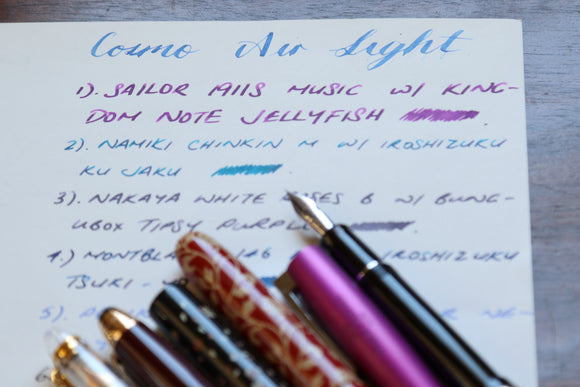 Cosmo Air Light
1). SAILOR 1911S MUSIC w/ KING-
DOM NOTE JELLYFISH
2). NAMIKI CHINKIN M w/ IROSHIZUKU
KUJAKU
3). NAKAYA WHITE B w/ BUNG-
UBOX TIPSY PURPLE
4.) 146 IROSHIZUKU
TSUKI-
5).